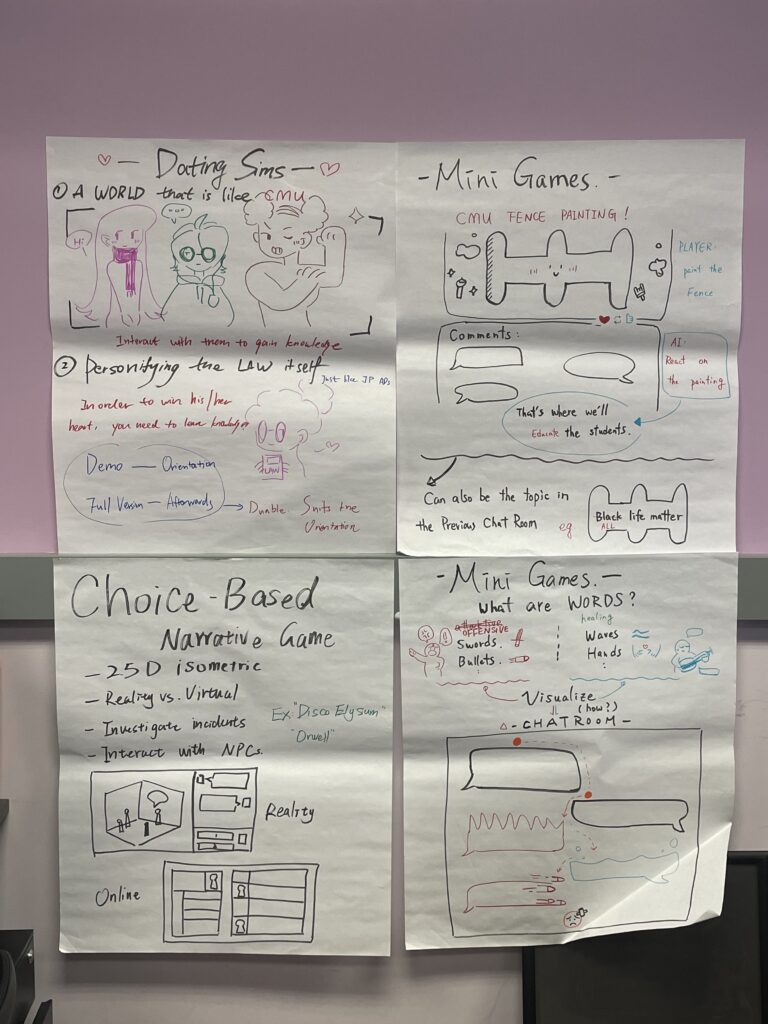 — Dating Sims —
① A WORLD that is like CMU
Hi
...
Interact with them to gain knowledge
② Personifying the LAW itself
Just like JP ADs
In order to win his/her
heart, you need to learn knowledge
LAW
Demo — Orientation
Full Version — Afterwards
Durable Suits the
Orientation
- Mini Games. -
CMU FENCE PAINTING!
PLAYER:
paint the
Fence
Comments:
AI:
React on
the painting
That's where we'll
Educate the students.
Can also be the topic in
the Previous Chat Room eg
Black life matter
ALL
Choice-Based
Narrative Game
- 2.5D isometric
- Reality vs. Virtual
- Investigate incidents
- Interact with NPCs.
Ex. "Disco Elysum"
"Orwell"
Reality
Online
- Mini Games. —
What are WORDS?
OFFENSIVE
Swords.
Bullets.
healing
Waves
Hands
Visualize
(how?)
- CHATROOM -